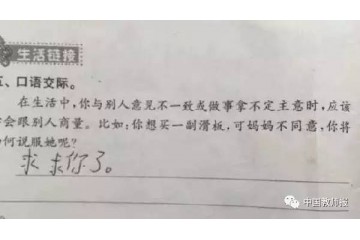 生活链接
五、口语交际。
在生活中,你与别人意见不一致或做事拿不定主意时,应该
会跟别人商量。比如:你想买一副滑板,可妈妈不同意,你将
何说服她呢?
求求你了。
中国教师报